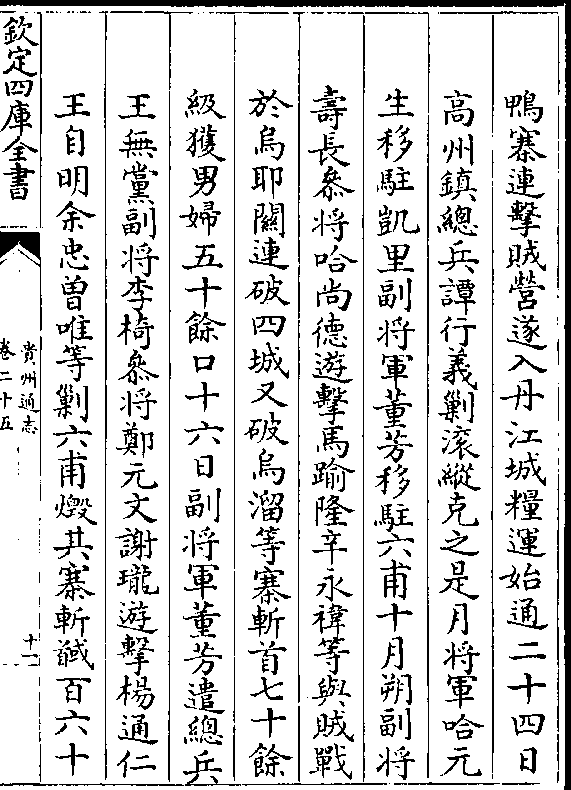 鴨寨連擊賊營遂入丹江城糧運始通二十四日
高州鎮總兵譚行義剿滚縱克之是月将軍哈元
生移駐凱里副将軍董芳移駐六甫十月朔副将
壽長叅将哈尚德遊擊馬踰隆辛永禕等與賊戰
於烏耶關連破四城又破烏溜等寨斬首七十餘
級獲男婦五十餘口十六日副将軍董芳遣總兵
王無黨副将李椅叅将鄭元文謝瓏遊擊楊通仁
王自明余忠曽唯等剿六甫燬其寨斬馘百六十
欽定四庫全書
貴州通志
卷二十五
十一